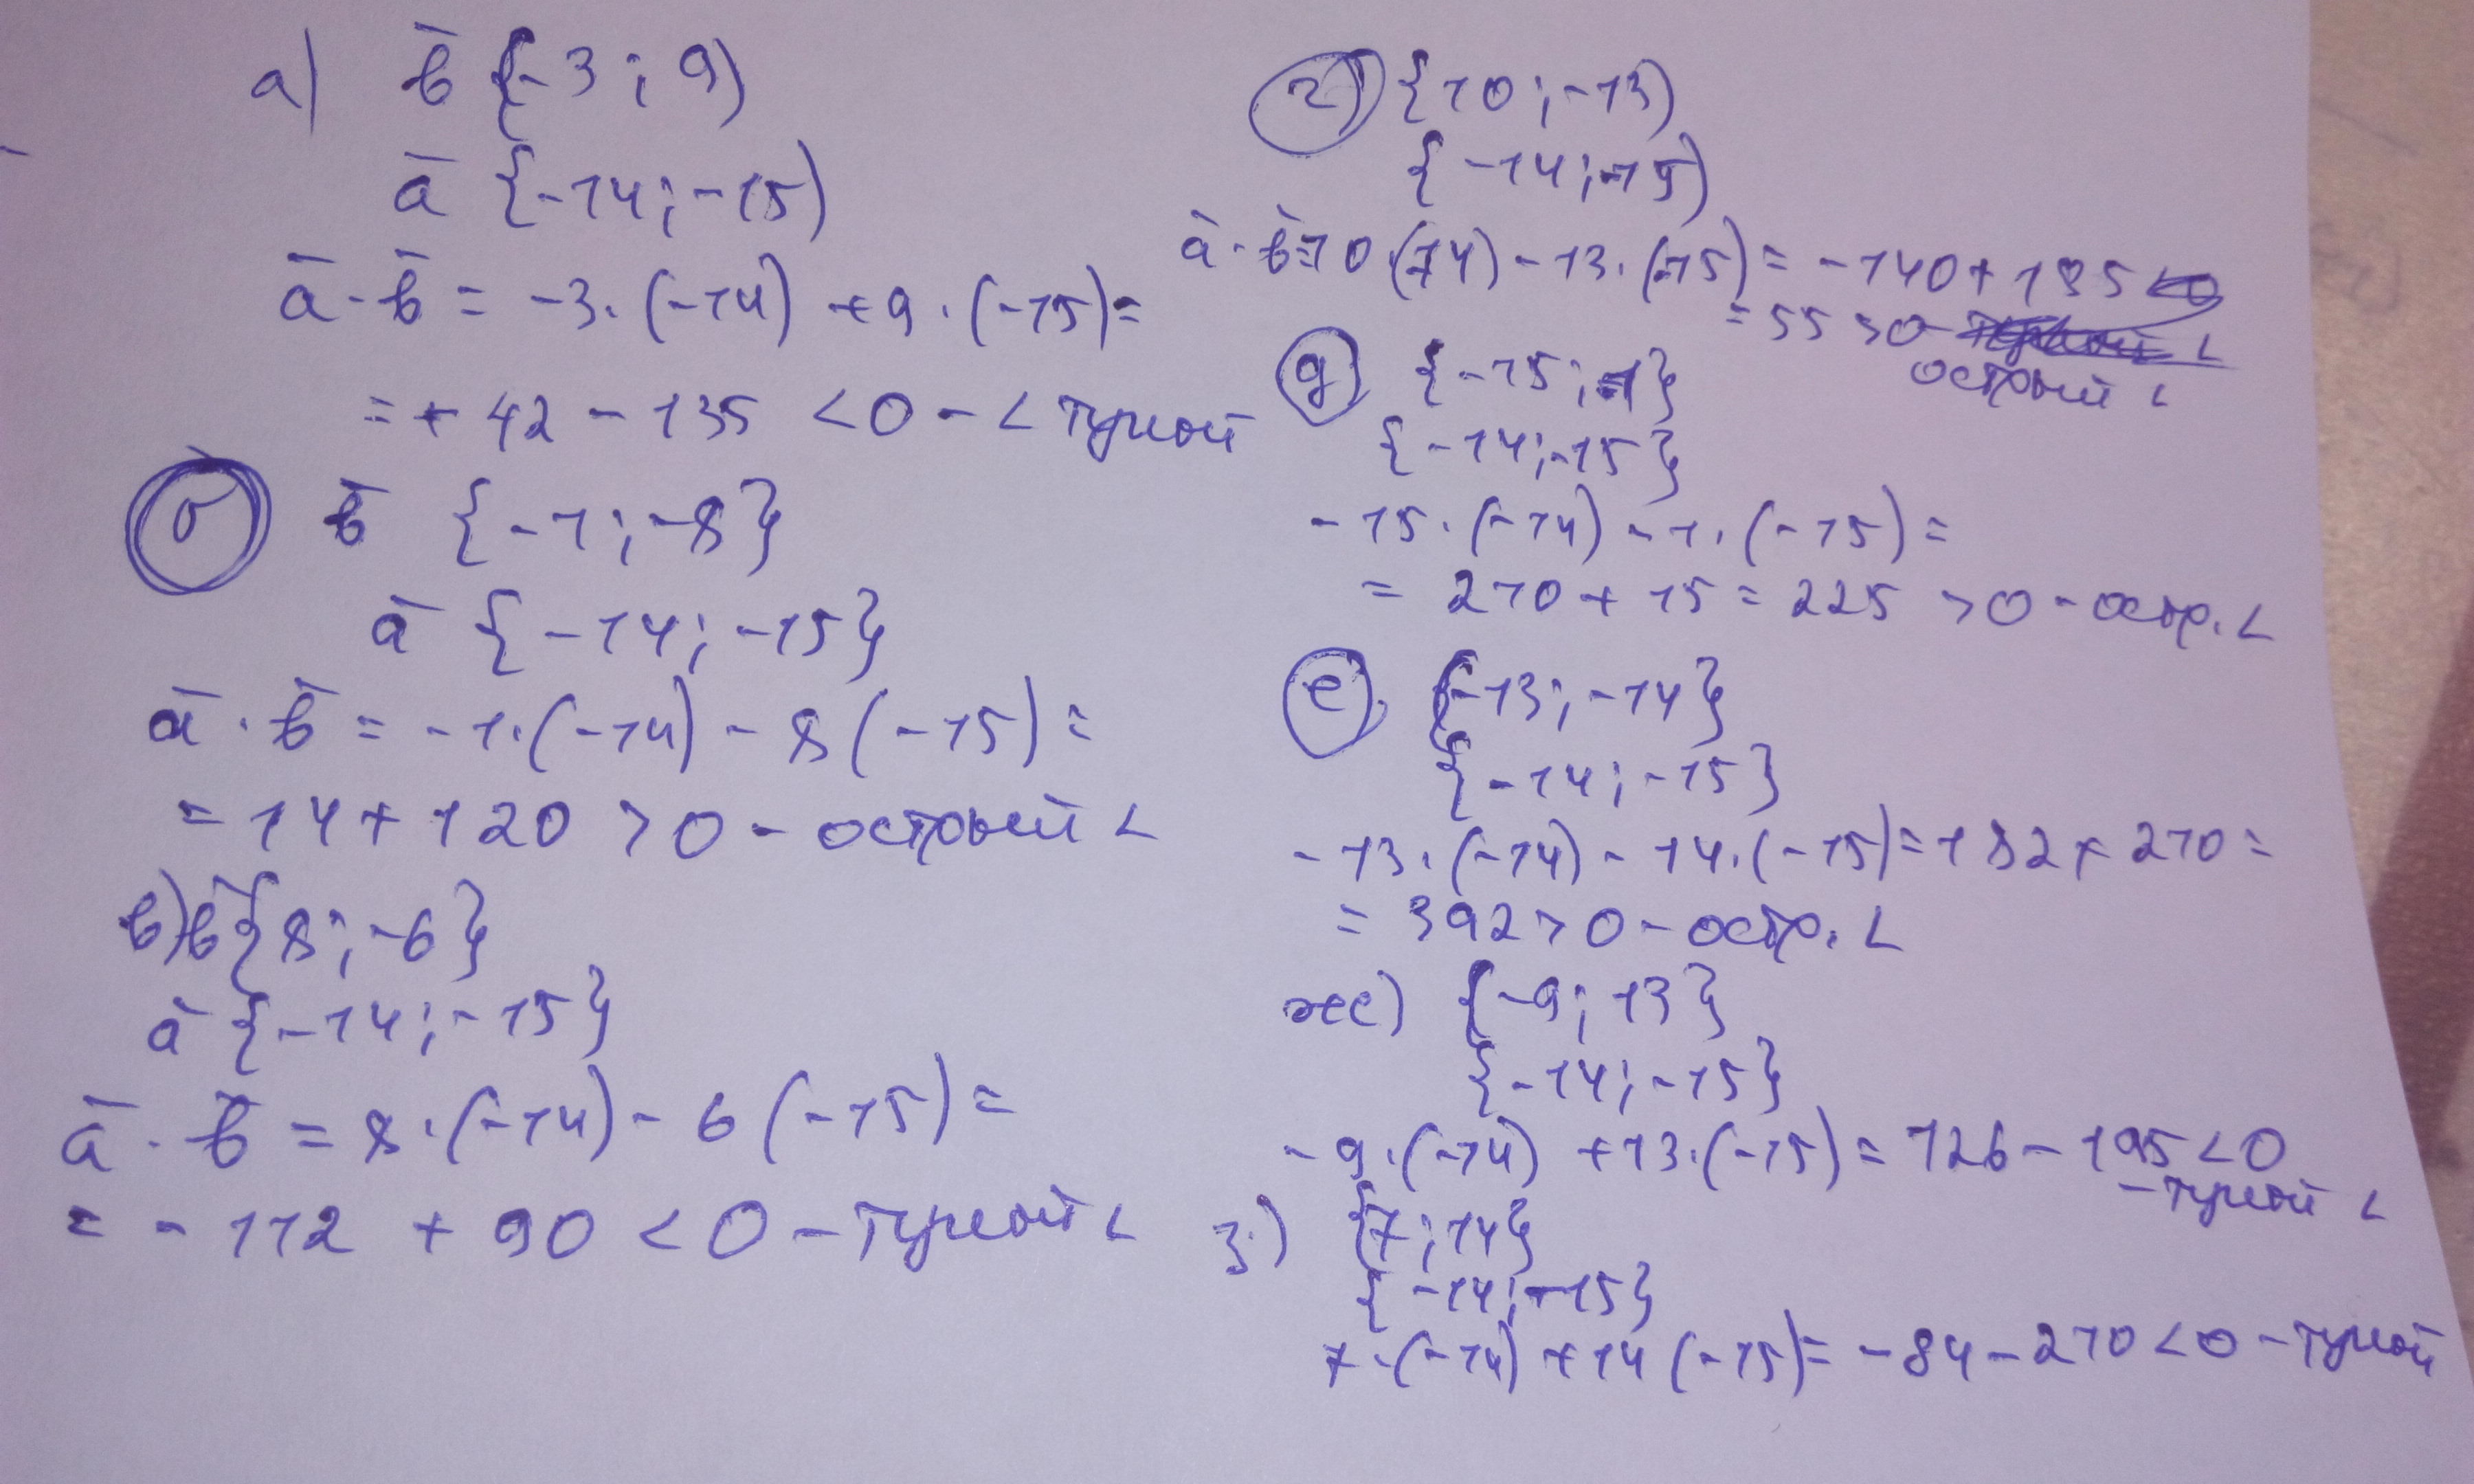 а) b̄ {-3; 9)
ā {-14; -15)
ā · b̄ = -3 · (-14) + 9 · (-15) =
= + 42 - 135 < 0 - ∠ тупой
б b̄ {-1; -8}
ā {-14; -15}
ā · b̄ = -1 · (-14) - 8 (-15) =
= 14 + 120 > 0 - острый ∠
в) b̄ {8; -6}
ā {-14; -15}
ā · b̄ = 8 · (-14) - 6 (-15) =
= - 112 + 90 < 0 - тупой ∠
г) {10; -13)
{-14; -15)
ā · b̄ = 10 · (-14) - 13 · (-15) = -140 + 195
= 55 > 0
острый ∠
д) {-15; -1}
{-14; -15}
-15 · (-14) - 1 · (-15) =
= 210 + 15 = 225 > 0 - остр. ∠
е) {-13; -14}
{-14; -15}
-13 · (-14) - 14 · (-15) = 182 + 210 =
= 392 > 0 - остр. ∠
ж) {-9; 13}
{-14; -15}
-9 · (-14) + 13 · (-15) = 126 - 195 < 0
- тупой ∠
з.) {7; 14}
{-14; -15}
7 · (-14) + 14 (-15) = -84 - 210 < 0 - тупой